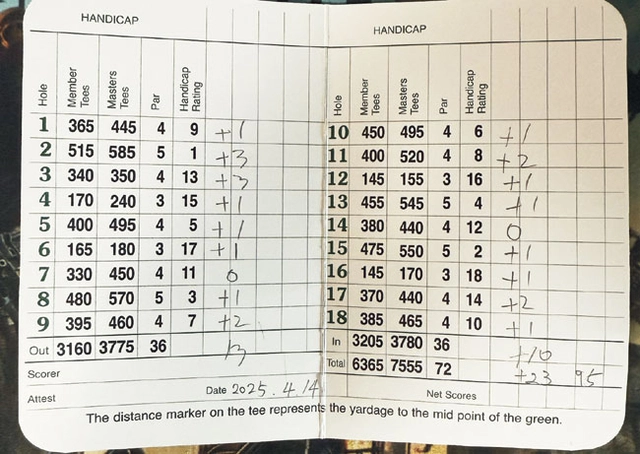 HANDICAP
Hole Member Tees Masters Tees Par Handicap Rating
1 365 445 4 9 +1
2 515 585 5 1 +3
3 340 350 4 13 +3
4 170 240 3 15 +1
5 400 495 4 5 +1
6 165 180 3 17 +1
7 330 450 4 11 0
8 480 570 5 3 +1
9 395 460 4 7 +2
Out 3160 3775 36 13
Scorer
Attest Date 2025.4.14
HANDICAP
Hole Member Tees Masters Tees Par Handicap Rating
10 450 495 4 6 +1
11 400 520 4 8 +2
12 145 155 3 16 +1
13 455 545 5 4 +1
14 380 440 4 12 0
15 475 550 5 2 +1
16 145 170 3 18 +1
17 370 440 4 14 +2
18 385 465 4 10 +1
In 3205 3780 36 +10
Total 6365 7555 72 +23 95
Net Scores
The distance marker on the tee represents the yardage to the mid point of the green.